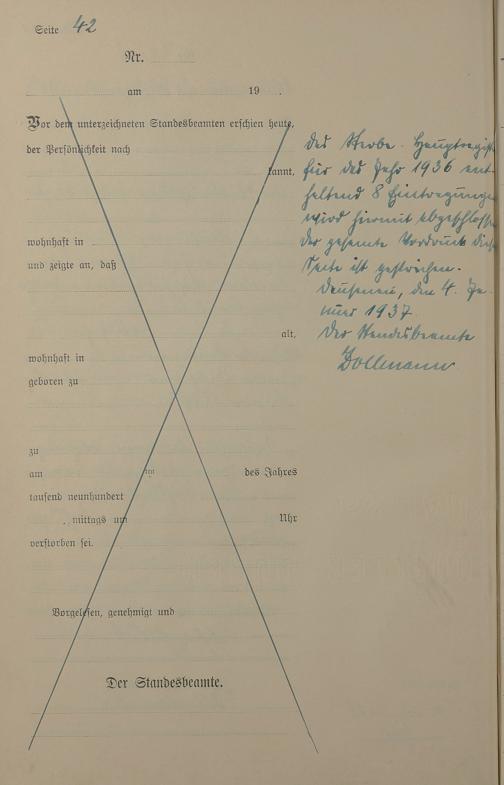 Seite 42
Nr.
am 19 .
Vor dem unterzeichneten Standesbeamten erschien heute,
der Persönlichkeit nach
kannt,
wohnhaft in
und zeigte an, daß
alt,
wohnhaft in
geboren zu
zu
am des Jahres
tausend neunhundert
mittags um Uhr
verstorben sei.
Vorgelesen, genehmigt und
Der Standesbeamte.
Das Sterbe-Hauptregist
für das Jahr 1936 ent-
haltend 8 Eintragungen
wird hiermit abgeschlossen
Der gesamte Vordruck dieser
Seite ist gestrichen.
den 4. Ja-
nuar 1937
Der Standesbeamte
Dollmann